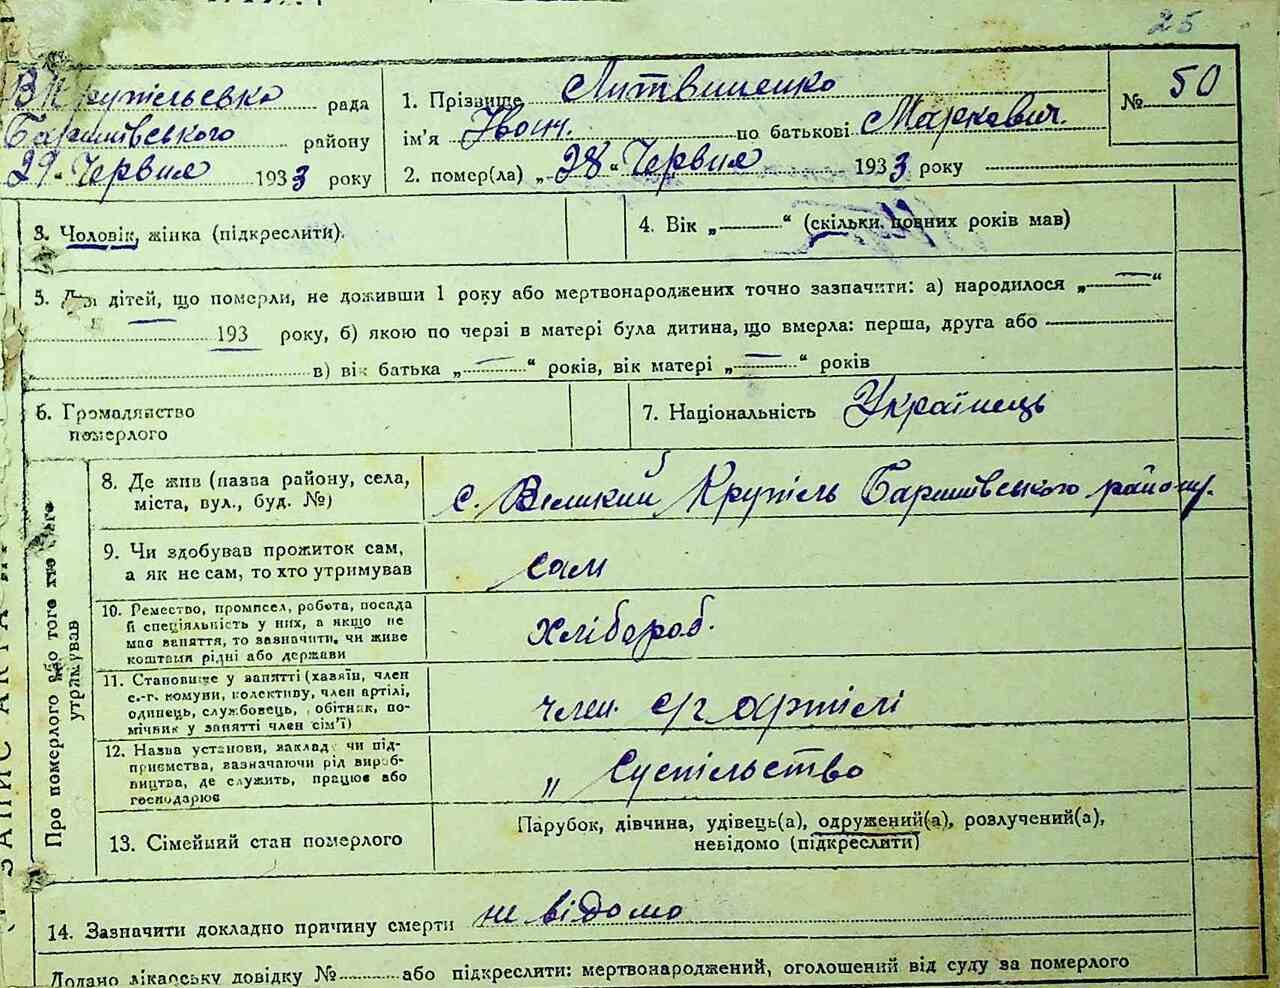 25
В Крупільська рада
Баришівського району
29 " Червня 1933 року
1. Прізвище Литвиненко
ім'я Іван. по батькові Маркович.
2. помер(ла) „ 28 " Червня 1933 року
№ 50
3. Чоловік, жінка (підкреслити).
4. Вік „ “ (скільки повних років мав)
5. Для дітей, що померли, не доживши 1 року або мертвонароджених точно зазначити: а) народилося „ “
193 року, б) якою по черзі в матері була дитина, що вмерла: перша, друга або
в) вік батька „ “ років, вік матері „ “ років
6. Громадянство
померлого
7. Національність Українець
Про померлого або того хто його
утримував
8. Де жив (назва району, села,
міста, вул., буд. №)
с. Великий Крупіль Баришівського району.
9. Чи здобував прожиток сам,
а як не сам, то хто утримував
сам
10. Ремество, промисел, робота, посада
й спеціяльність у них, а якщо не
має заняття, то зазначити, чи живе
коштами рідні або держави
хлібороб.
11. Становище у занятті (хазяїн, член
с.-г. комуни, колективу, член артілі,
одинець, службовець, обітник, по-
мічник у занятті член сім'ї)
член. с/г артілі
12. Назва установи, закладу чи під-
приємства, зазначаючи рід вироб-
ництва, де служить, працює або
господарює
„ Суспільство
13. Сімейний стан померлого
Парубок, дівчина, удівець(а), одружений(а), розлучений(а),
невідомо (підкреслити)
14. Зазначити докладно причину смерти не відомо
Додано лікарську довідку № або підкреслити: мертвонароджений, оголошений від суду за померлого